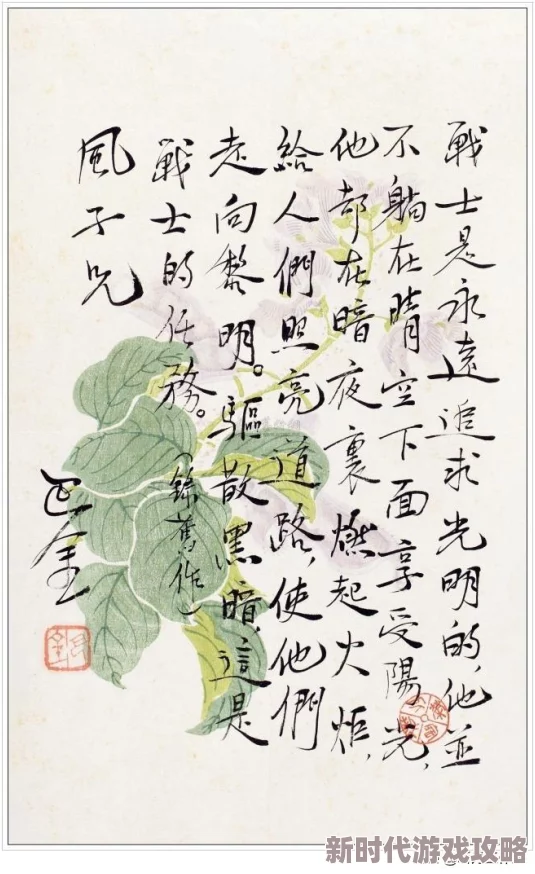 戰士是永遠追求光明的,他並
不躺在晴空下面享受陽光,
他却在暗夜裏燃起火炬,
給人們照亮道路,使他們
走向黎明。驅散黑暗,這是
戰士的任務。
(錄舊作)
風子兄
巴金
新时代游戏攻略